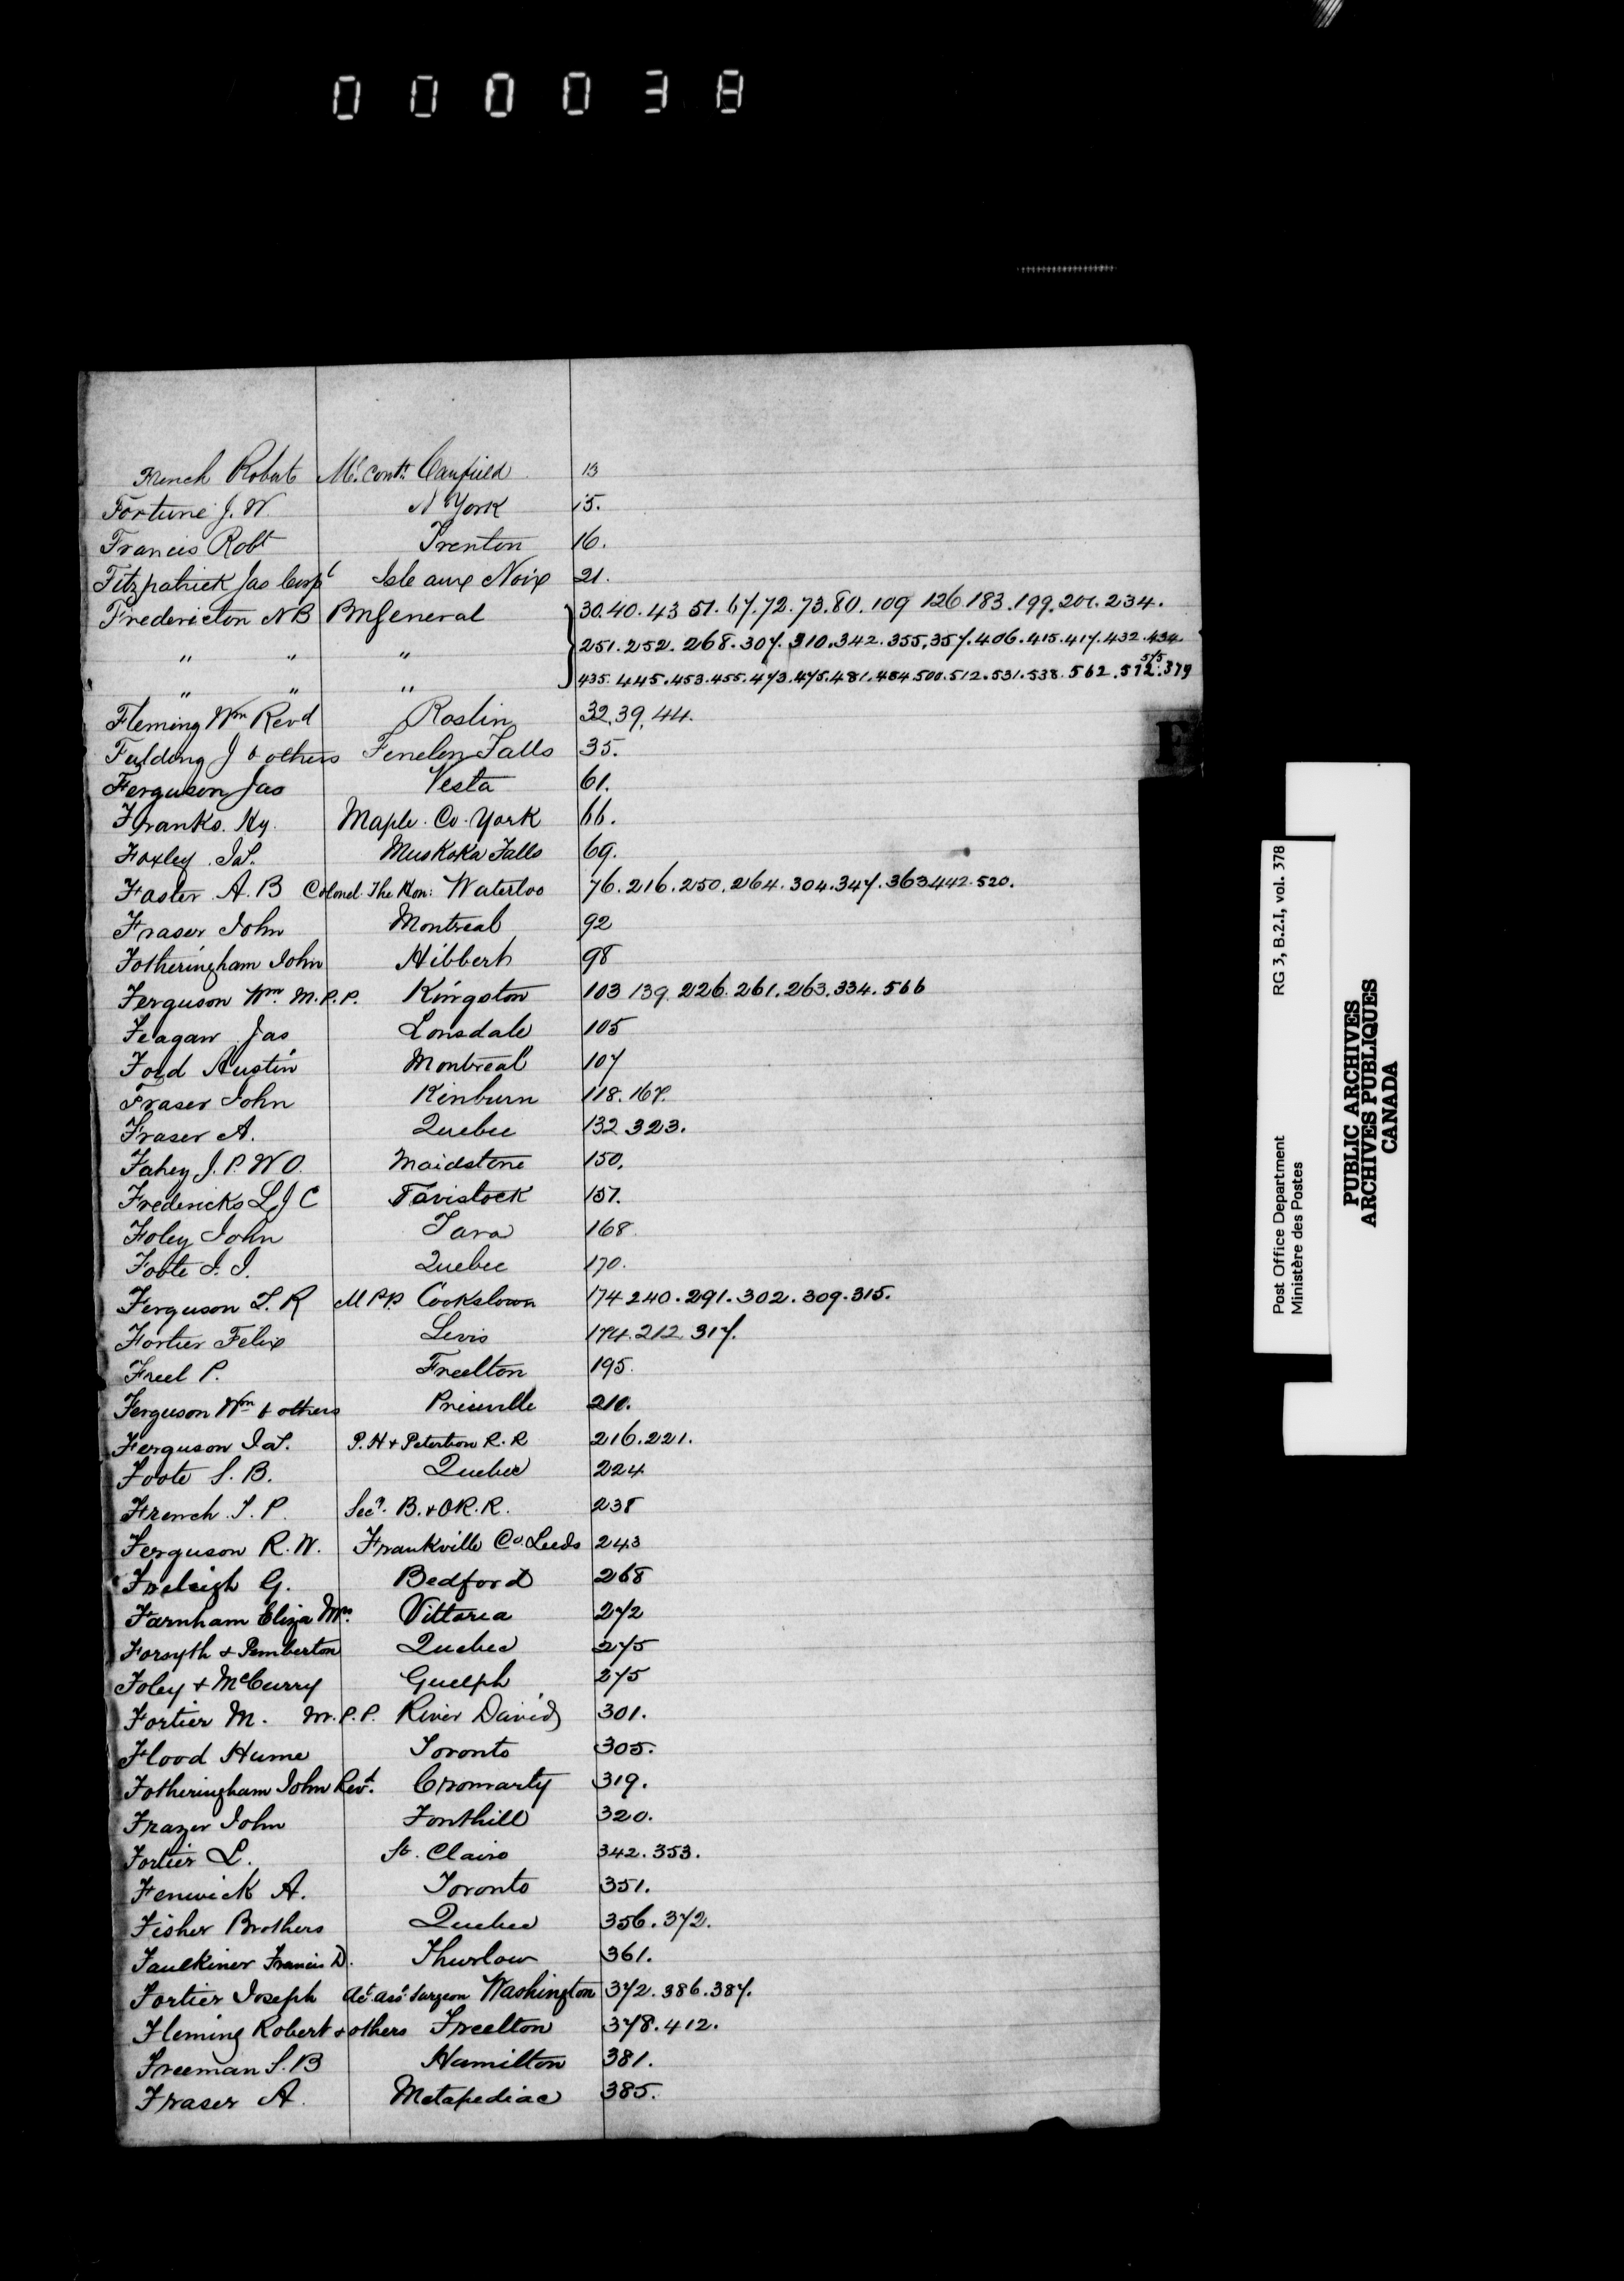 000038
French Robert Ml. Contr. Canfield 13
Fortune J. W. N York 15.
Francis Robt Trenton 16.
Fitzpatrick Jas Corpl Isle aux Noix 21.
Fredericton NB PMGeneral 30.40.43 51.67.72.73.80.109 126.183.199.201.234.
" " " 251.252.268.307.310.342.355.357.406.415.417.432.434
" " " 435.445.453.455.473.475.481.484.500.512.531.538.562.572.575.379
Fleming Wm Revd Roslin 32.39.44.
Feilding J & others Fenelon Falls 35.
Ferguson Jas Vesta 61.
Franks Hy. Maple Co. York 66.
Foxley Muskoka Falls 69.
Foster A. B Colonel The Hon: Waterloo 76.216.250.264.304.347.363.442.520.
Fraser John Montreal 92
Fotheringham John Hibbert 98
Ferguson Wm. M.P.P. Kingston 103 139.226.261.263.334.566
Feagan Jas Lonsdale 105
Ford Austin Montreal 107
Fraser John Kinburn 118.167.
Fraser A. Quebec 132 323.
Fahey J. P. W O. Maidstone 150.
Fredericks L J C Tavistock 157.
Foley John Tara 168.
Foote J. J. Quebec 170.
Ferguson T. R M P.P. Cookstown 174 240.291.302.309.315.
Fortier Felix Levis 174.212.317.
Freel P. Freelton 195.
Ferguson Wm & others Priceville 210.
Ferguson P. H & Peterboro R. R 216.221.
Foote S. B. Quebec 224
French S. P. Secy. B. & O R. R. 238
Ferguson R. W. Frankville Co. Leeds 243
Freleigh G. Bedford 268
Farnham Eliza Mrs. Vittoria 272
Forsyth & Pemberton Quebec 275
Foley & McCurry Guelph 275
Fortier M. M.P.P. River David 301.
Flood Hume Toronto 305.
Fotheringham John Revd. Cromarty 319.
Frazer John Fonthill 320.
Fortier L. St. Claire 342.353.
Fenwick A. Toronto 351.
Fisher Brothers Quebec 356.372.
Faulkiner Francis D. Thurlow 361.
Fortier Joseph Act. Asst. Surgeon Washington 372.386.387.
Fleming Robert & others Freelton 378.412.
Freeman S. B Hamilton 381.
Fraser A. Metapediac 385.
F
RG 3, B.2.I, vol. 378
Post Office Department
Ministère des Postes
PUBLIC ARCHIVES
ARCHIVES PUBLIQUES
CANADA